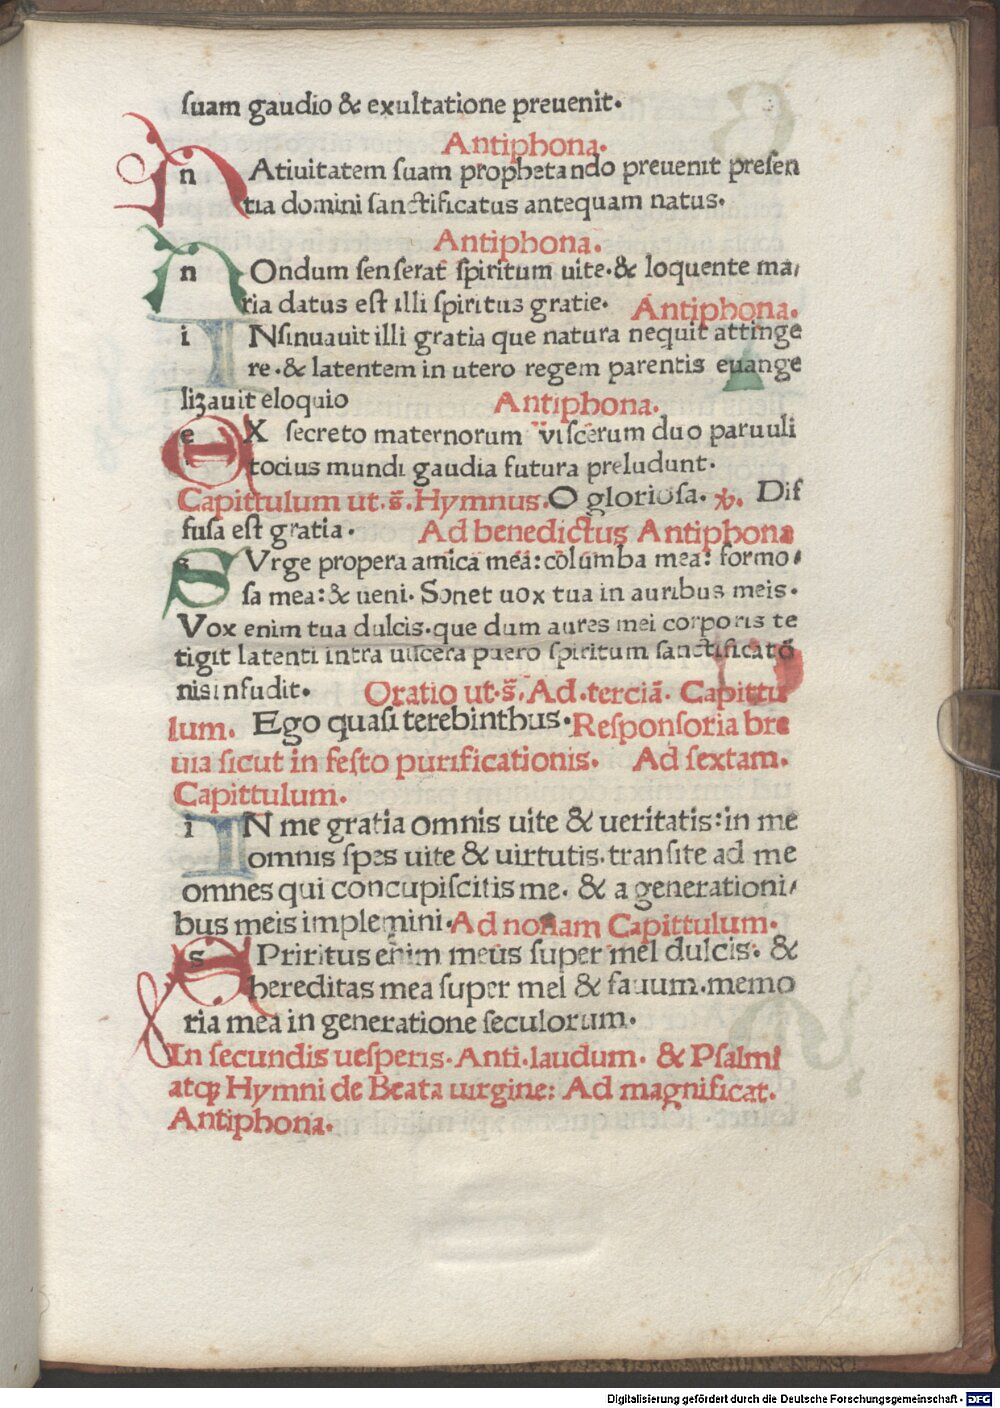 ſuam gaudio & exultatione preuenit.
Antiphona.
nAtiuitatem ſuam prophetando preuenit preſen
tia domini ſanctificatus antequam natus.
Antiphona.
nOndum ſenſerat ſpiritum uite.& loquente ma/
ria datus eſt illi ſpiritus gratie. Antiphona.
iNſinuauit illi gratia que natura nequit attinge
re.& latentem in utero regem parentis euange
lizauit eloquio Antiphona.
eX ſecreto maternorum viſcerum duo paruuli
tocius mundi gaudia futura preludunt.
Capittulum ut.s̄.Hymnus.O glorioſa. ꝟ. Dif
fuſa eſt gratia. Ad benedictus Antiphona
sVrge propera amica mea:columba mea: formo/
ſa mea:& ueni. Sonet uox tua in auribus meis.
Vox enim tua dulcis.que dum aures mei corporis te
tigit latenti intra uiſcera puero ſpiritum ſanctificatō
nis infudit. Oratio ut.s̄.Ad.terciā. Capittu
lum. Ego quaſi terebinthus.Reſponſoria bre
uia ſicut in feſto purificationis. Ad ſextam.
Capittulum.
iN me gratia omnis uite & ueritatis:in me
omnis ſpes uite & uirtutis.tranſite ad me
omnes qui concupiſcitis me. & a generationi/
bus meis implemini.Ad nonam Capittulum.
sPriritus enim meus ſuper mel dulcis. &
hereditas mea ſuper mel & fauum.memo
ria mea in generatione ſeculorum.
In ſecundis ueſperis.Anti.laudum. & Pſalmi
atqꝫ Hymni de Beata uirgine: Ad magnificat.
Antiphona.
Digitalisierung gefördert durch die Deutsche Forschungsgemeinschaft - DFG